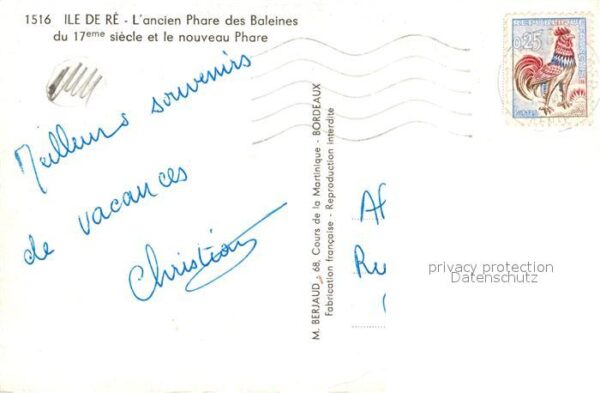 1516 ILE DE RÉ - L'ancien Phare des Baleines
du 17eme siècle et le nouveau Phare
Meilleurs souvenirs
de vacances
Christian
M. BERJAUD - 68, Cours de la Martinique - BORDEAUX
Fabrication française - Reproduction interdite
0,25
Af
Ru
privacy protection
Datenschutz